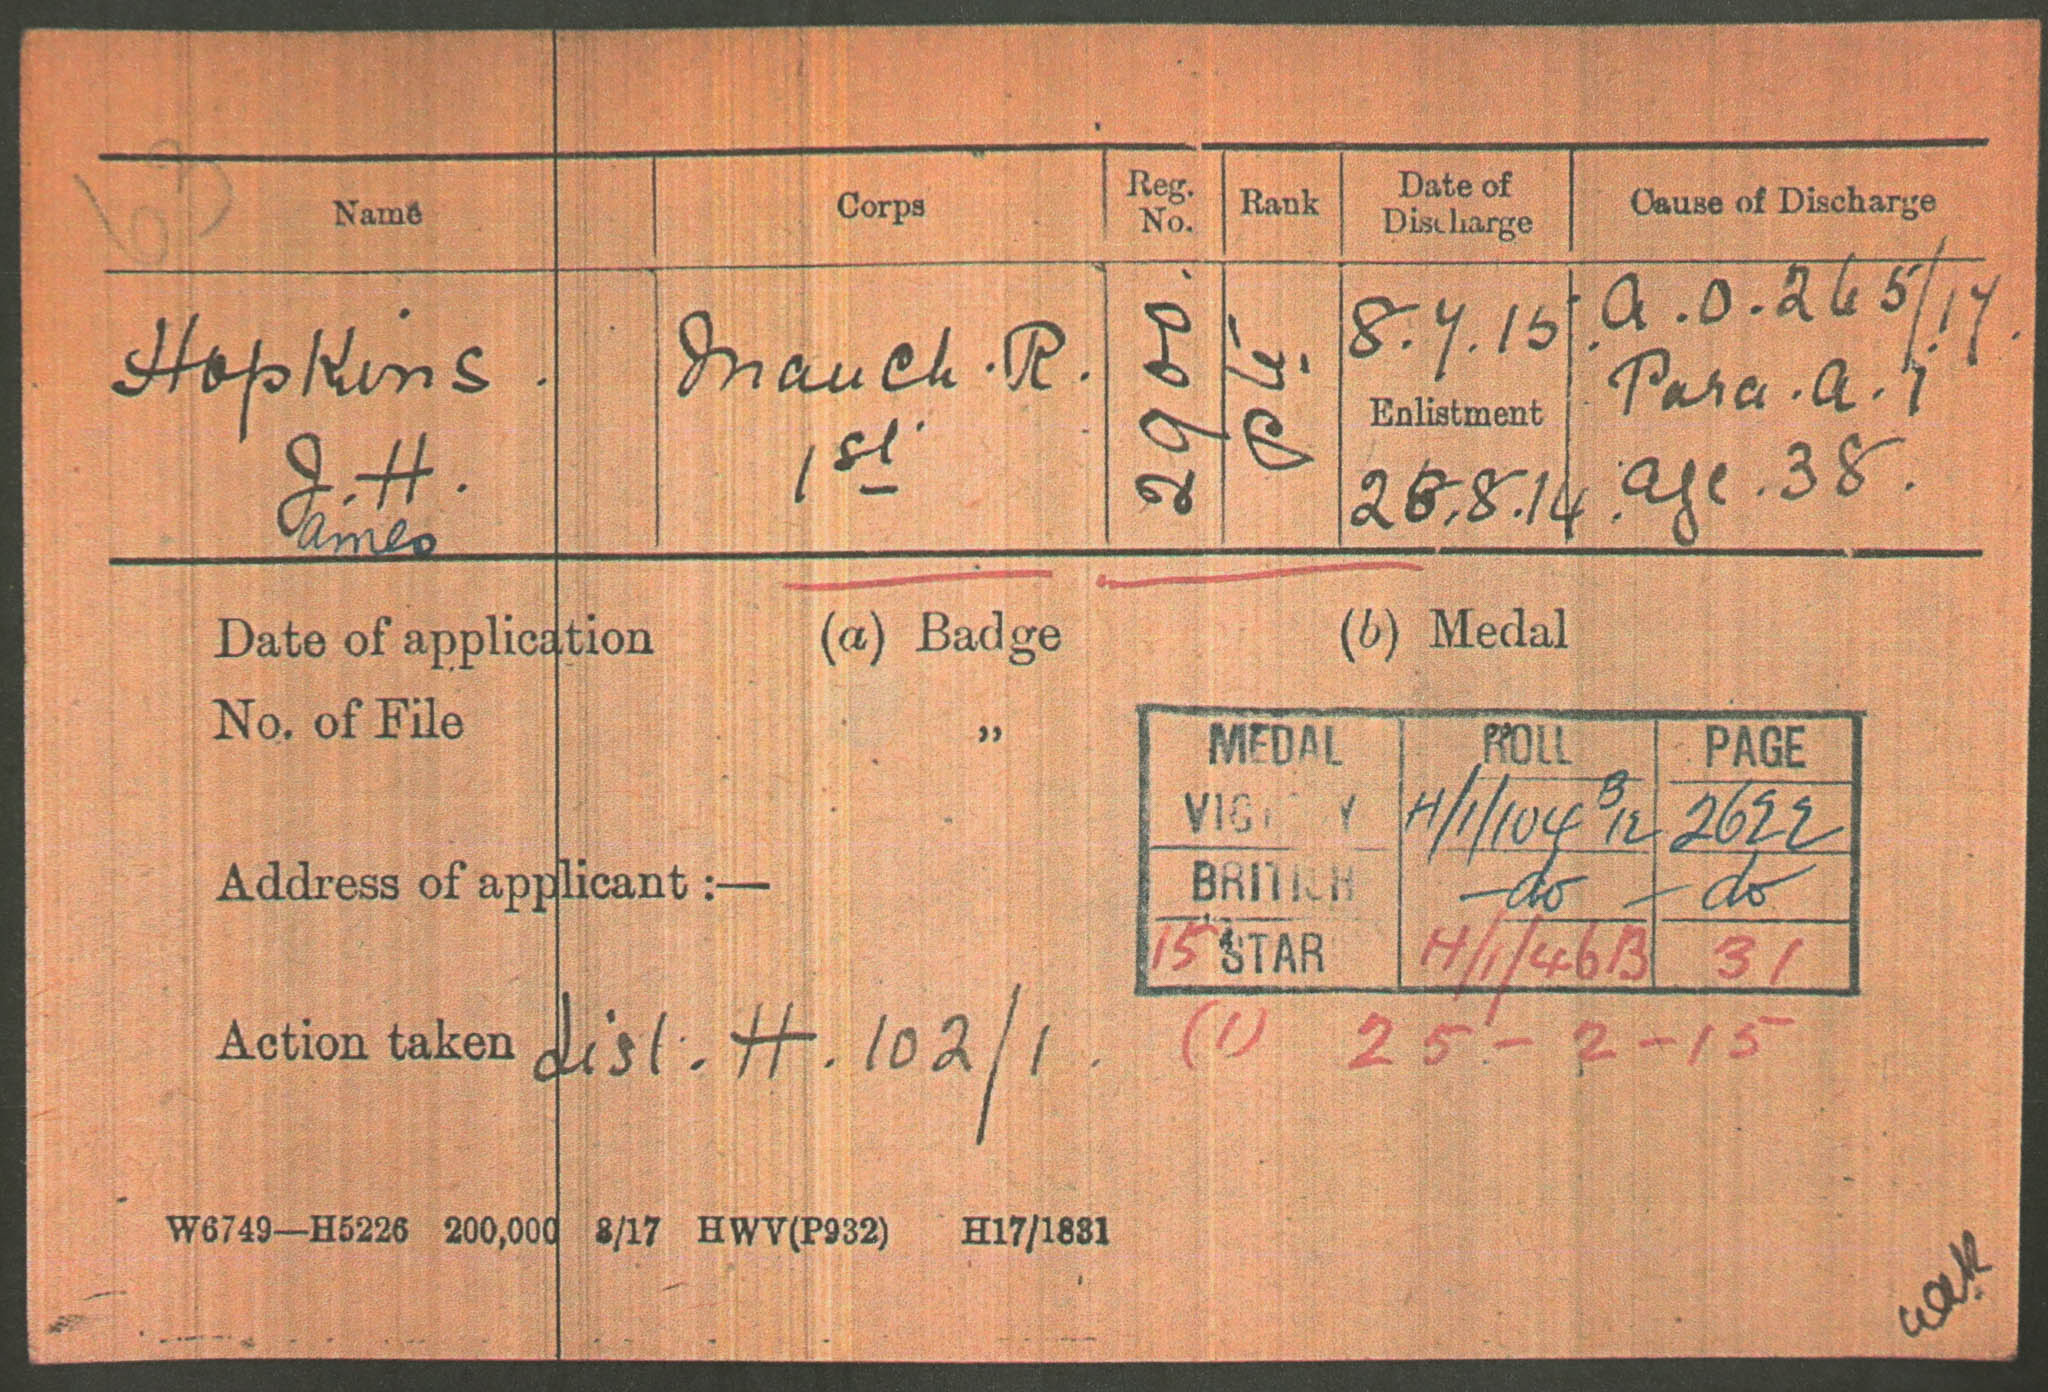 63
Name Corps Reg. No. Rank Date of Discharge Cause of Discharge
Hopkins. Manch. R. 2900. Pte. 8.7.15. A.O.265/17.
Para. a. i
Enlistment
J.H. 1st 26.8.14. age. 38.
ames
Date of application (a) Badge (b) Medal
No. of File "
MEDAL ROLL PAGE
VICTORY H/1/104 B/12 2622
Address of applicant :—
BRITISH -do- do
15 STAR H/1/46B 31
Action taken List. H. 102/1. (1) 25-2-15
W6749—H5226 200,000 8/17 HWV(P932) H17/1831